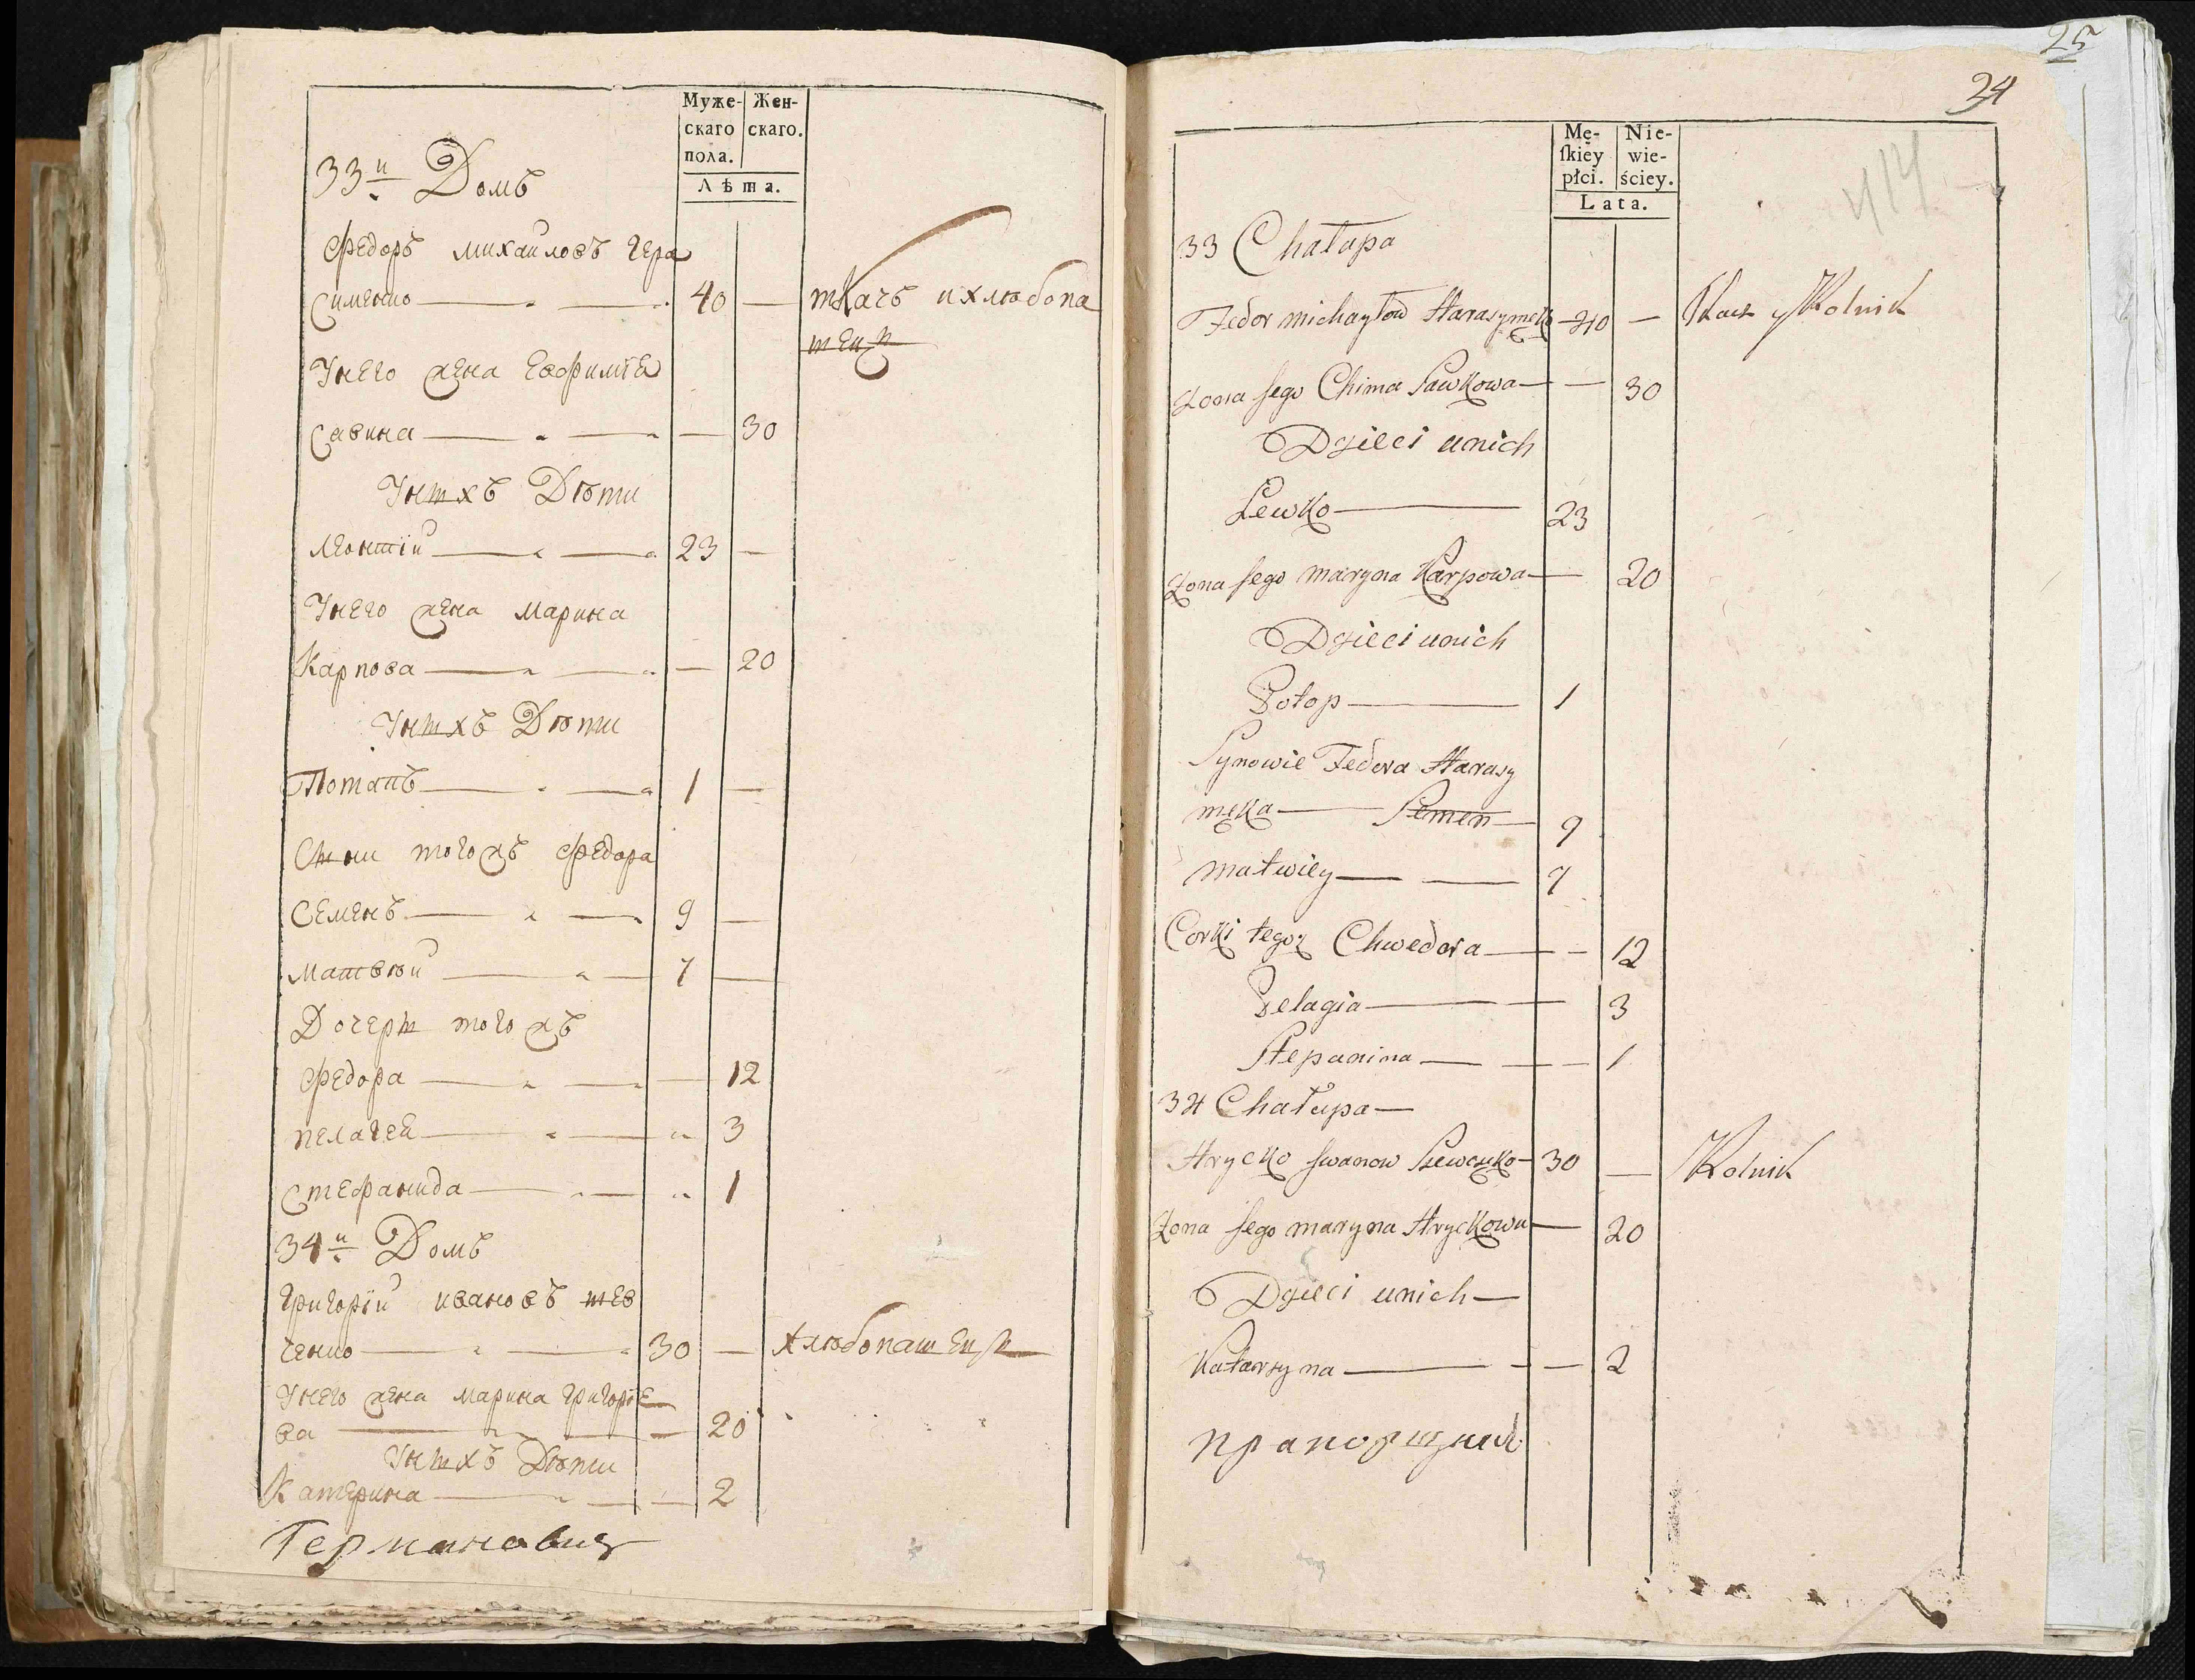 Муже-
скаго
пола.
Жен-
скаго.
Лѣта.
33й Домъ
Федоръ михаиловъ гера
сименко 40 — ткачъ и хлѣбопа
шецъ
У него жена Евфимiя
савина — 30
У ныхъ Дѣти
Леонтiй 23 —
У него жена Марина
Карпова — 20
У ныхъ Дѣти
Потапъ 1 —
Сыны тогожъ Федора
Семенъ 9 —
Матвѣй 7 —
Дочеры тогожъ
Федора — 12
пелагея " 3
стефанида " 1
34й Домъ
Григорiй ивановъ шев
ченко 30 — Хлѣбопашецъ
У него жена марина григорiе
ва — 20
У ныхъ Дѣти
Катерина — 2
Германович
25
24
Mę-
ſkiey
płci.
Nie-
wie-
ściey.
Lata.
414
33 Chałupa
Fedor michayłow Harasymęko 40 — Tkacz y Rolnik
Żona Jego Chima Sawkowa — 30
Dzieci u nich
Lewko 23
Żona Jego maryna Karpowa — 20
Dzieci u nich
Potop 1
Synowie Fedora Harasy
męka — Semen 9
matwiey — 7
Corki tegoż Chwedora — 12
Pelagia — 3
Stepanina — 1
34 Chałupa —
Hrycko Jwanow Szewczuko 30 — Rolnik
Żona Jego maryna Hryckowa — 20
Dzieci u nich —
Katarzyna — 2
прапорщикъ